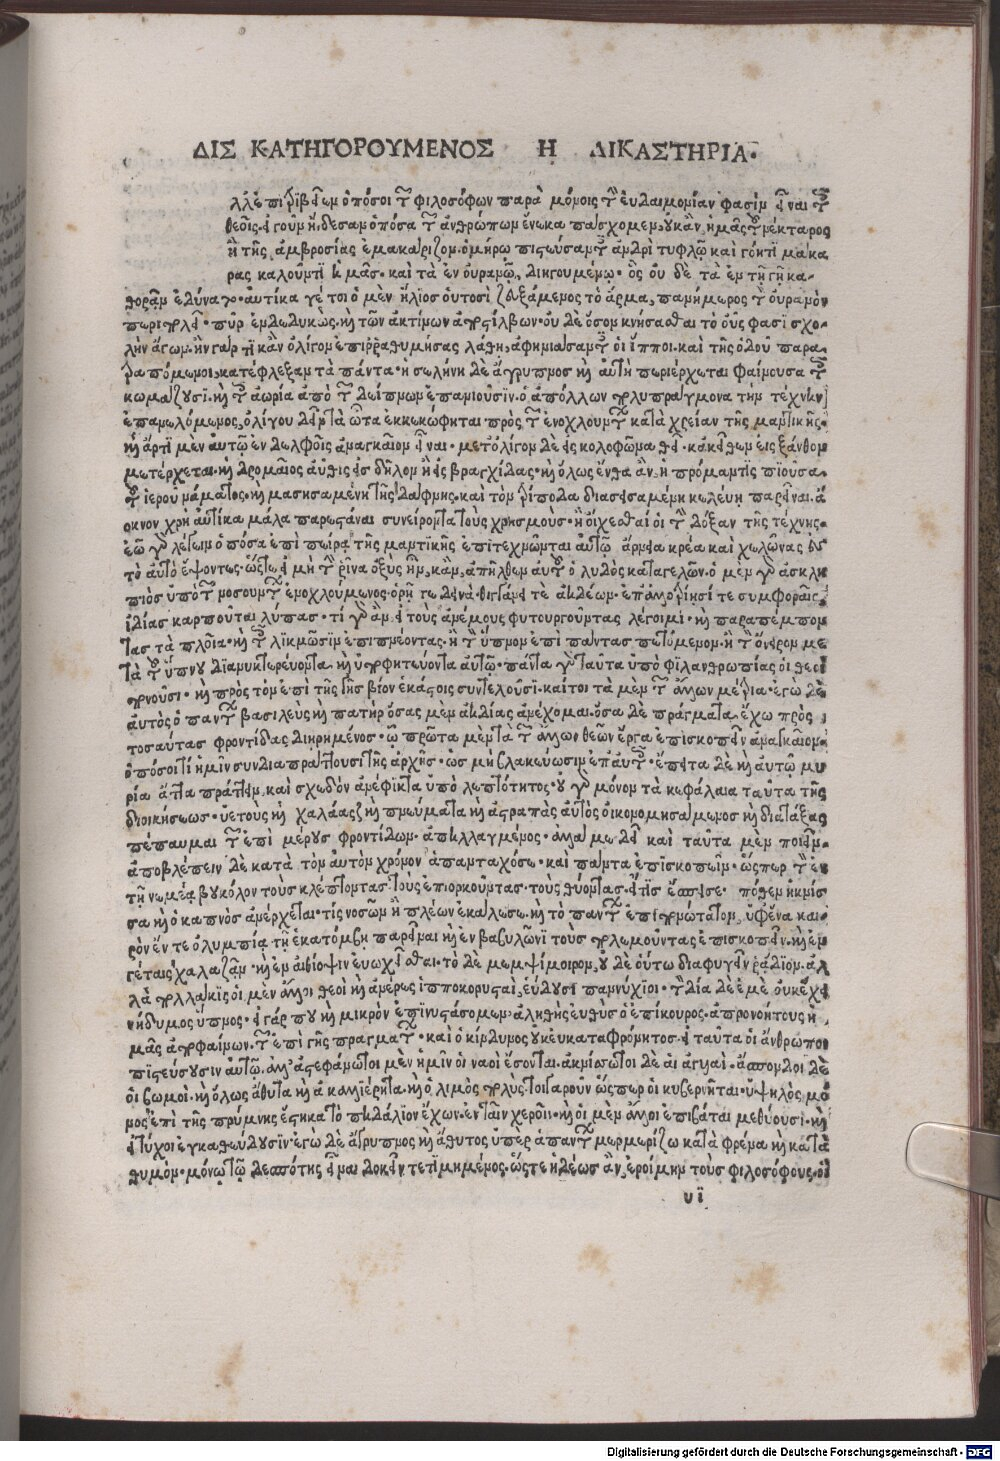 ΔΙΣ ΚΑΤΗΓΟΡΟΥΜΕΝΟΣ Η ΔΙΚΑΣΤΗΡΙΑ.
ὁπόσοι τῶν φιλοσόφων παρὰ μόνοις τὴν εὐδαιμονίαν φασὶν εἶναι τοῖς
θεοῖς. εἰ γοῦν ᾔδεσαν ὁπόσα τῶν ἀνθρώπων ἕνεκα πάσχομεν, οὐκ ἂν ἡμᾶς τοῦ νέκταρος
ἢ τῆς ἀμβροσίας ἐμακάριζον. ὁμήρῳ πιστεύσαντες ἀνδρὶ τυφλῷ καὶ γόητι μάκα
ρας καλοῦντι ἡμᾶς. καὶ τὰ ἐν οὐρανῷ διηγουμένῳ. ὃς οὐ δὲ τὰ ἐν τῇ γῇ κα-
θορᾶν ἐδύνατο. αὐτίκα γέ τοι ὁ μὲν ἥλιος οὑτοσὶ ζευξάμενος τὸ ἅρμα, πανήμερος τὸν οὐρανὸν
περιπολεῖ. πῦρ ἐνδεδυκὼς. καὶ τῶν ἀκτίνων ἀποστίλβων. οὐ δὲ ὅσον κνήσασθαι τὸ οὖς φασὶ σχο-
λὴν ἄγων. ἢν γάρ τι κἂν ὀλίγον ἐπιῤῥαθυμήσας λάθῃ, ἀφηνιάσαντες οἱ ἵπποι. καὶ τῆς ὁδοῦ παρα-
τραπόμενοι, κατέφλεξαν τὰ πάντα. ἡ σελήνη δὲ ἄγρυπνος καὶ αὐτὴ περιέρχεται φαίνουσα τοῖς
κωμάζουσι. καὶ τοῖς ἀωρὶ ἀπὸ τῶν δείπνων ἐπανιοῦσιν. ὁ ἀπόλλων πολυπράγμονα τὴν τέχνην
ἐπανελόμενος, ὀλίγου δεῖν τὰ ὦτα ἐκκεκώφηται πρὸς τῶν ἐνοχλούντων κατὰ χρείαν τῆς μαντικῆς.
καὶ ἄρτι μὲν αὐτῷ ἐν δελφοῖς ἀναγκαῖον εἶναι. μετ' ὀλίγον δὲ ἐς κολοφῶνα θεῖ. κἀκεῖθεν εἰς ξάνθον
μετέρχεται. καὶ δρομαῖος αὖθις ἐς δῆλον ἢ ἐς βραγχίδας. καὶ ὅλως ἔνθα ἂν ἡ πρόμαντις πιοῦσα
τοῦ ἱεροῦ νάματος. καὶ μασησαμένη τῆς δάφνης. καὶ τὸν τρίποδα διασεισαμένη κελεύῃ παρεῖναι. ἄ
οκνον χρὴ αὐτίκα μάλα παρεστάναι συνείροντα τοὺς χρησμοὺς. ἢ οἴχεσθαί οἱ τὴν δόξαν τῆς τέχνης.
ἐῶ γὰρ λέγειν ὁπόσα ἐπὶ πείρᾳ τῆς μαντικῆς ἐπιτεχνῶνται αὐτῷ, ἄρνεια κρέα καὶ χελώνας εἰς
πιὸς ὑπὸ τῶν νοσούντων ἐνοχλούμενος. ὁρῇ
ἰδίας καρποῦται λύπας. τί γὰρ ἂν ἢ τοὺς ἀνέμους φυτουργοῦντας λέγοιμι. καὶ παραπέμπον
τας τὰ πλοῖα. καὶ τοῖς λικμῶσιν ἐπιπνέοντας. ἢ τὸν ὕπνον ἐπὶ πάντας πετόμενον. ἢ τὸν ὄνειρον με
τὰ τοῦ ὕπνου διανυκτερεύοντα. καὶ ὑποφητεύοντα αὐτῷ. πάντα γὰρ ταῦτα ὑπὸ φιλανθρωπίας οἱ θεοὶ
πονοῦσι. καὶ πρὸς τὸν ἐπὶ τῆς γῆς βίον ἑκάστοις συντελοῦσι. καίτοι τὰ μὲν τῶν ἄλλων μέτρια. ἐγὼ δὲ
αὐτὸς ὁ πάντων βασιλεὺς καὶ πατὴρ ὅσας μὲν ἀηδίας ἀνέχομαι. ὅσα δὲ πράγματα ἔχω πρὸς
τοσαύτας φροντίδας διῃρημένος. ᾧ πρῶτα μὲν τὰ τῶν ἄλλων θεῶν ἔργα ἐπισκοπεῖν ἀναγκαῖον.
ὁπόσοι τι ἡμῖν συνδιαπράττουσι τῆς ἀρχῆς. ὡς μὴ βλακεύωσιν ἐπ' αὐτοῖς. ἔπειτα δὲ καὶ αὐτῷ μυ
ρία ἄττα πράττειν. καὶ σχεδὸν ἀνέφικτα ὑπὸ λεπτότητος. οὐ γὰρ μόνον τὰ κεφάλαια ταῦτα τῆς
διοικήσεως. ὑετοὺς καὶ χαλάζας καὶ πνεύματα καὶ ἀστραπὰς αὐτὸς οἰκονομησάμενος καὶ διατάξας
πέπαυμαι τῶν ἐπὶ μέρους φροντίδων. ἀπηλλαγμένος. ἀλλά με δεῖ καὶ ταῦτα μὲν ποιεῖν.
ἀποβλέπειν δὲ κατὰ τὸν αὐτὸν χρόνον ἁπανταχόσε. καὶ πάντα ἐπισκοπεῖν. ὥσπερ τὸν ἐν
τῇ νεμέᾳ βουκόλον τοὺς κλέπτοντας. τοὺς ἐπιορκοῦντας. τοὺς θύοντας. εἴ τις ἔσπεισε. πόθεν ἡ κνίσ
σα καὶ ὁ καπνὸς ἀνέρχεται. τίς νοσῶν ἢ πλέων ἐκάλεσε. καὶ τὸ πάντων ἐπιπονώτατον, ὑφ' ἕνα και-
ρὸν ἔν τε ὀλυμπίᾳ τῇ ἑκατόμβῃ παρεῖναι καὶ ἐν βαβυλῶνι τοὺς πολεμοῦντας ἐπισκοπεῖν. καὶ ἐν
γέταις χαλαζᾶν. καὶ ἐν αἰθίοψιν εὐωχεῖσθαι. τὸ δὲ μεμψίμοιρον, οὐ δὲ οὕτω διαφυγεῖν ῥᾴδιον. ἀλ
λὰ πολλάκις οἱ μὲν ἄλλοι θεοὶ καὶ ἀνέρες ἱπποκορυσταὶ, εὕδουσι παννύχιοι. τὸν δία δὲ ἐμὲ οὐκ ἔχει
νήδυμος ὕπνος. εἰ γάρ που καὶ μικρὸν ἐπινυστάσωμεν. ἀληθὴς εὐθὺς ὁ ἐπίκουρος. ἀπρονοήτους ἡ
μᾶς ἀποφαίνων. τῶν ἐπὶ γῆς πραγμάτων. καὶ ὁ κίνδυνος οὐκ εὐκαταφρόνητος. εἰ ταῦτα οἱ ἄνθρωποι
πιστεύσουσιν αὐτῷ. ἀλλ' ἀστεφάνωτοι μὲν ἡμῖν οἱ ναοὶ ἔσονται. ἀκνίσωτοι δὲ αἱ ἀγυιαὶ. ἄσπονδοι δὲ
οἱ βωμοὶ. καὶ ὅλως ἄθυτα καὶ ἀκαλλιέρητα. καὶ ὁ λιμὸς πολὺς. τοιγαροῦν ὥσπερ οἱ κυβερνῆται. ὑψηλὸς μό
νος ἐπὶ τῆς πρύμνης ἕστηκα τὸ πηδάλιον ἔχων ἐν ταῖν χεροῖν. καὶ οἱ μὲν ἄλλοι ἐπιβάται μεθύουσι. καὶ
εἰ τύχοι ἐγκαθεύδουσιν. ἐγὼ δὲ ἄγρυπνος καὶ ἄθυτος ὑπὲρ ἁπάντων μερμηρίζω κατὰ φρένα καὶ κατὰ
θυμόν. μόνῳ τῷ δεσπότης εἶναι δοκεῖν τετιμημένος. ὥστε ἡδέως ἂν ἐροίμην τοὺς φιλοσόφους. οἳ
υϊ
Digitalisierung gefördert durch die Deutsche Forschungsgemeinschaft - DFG